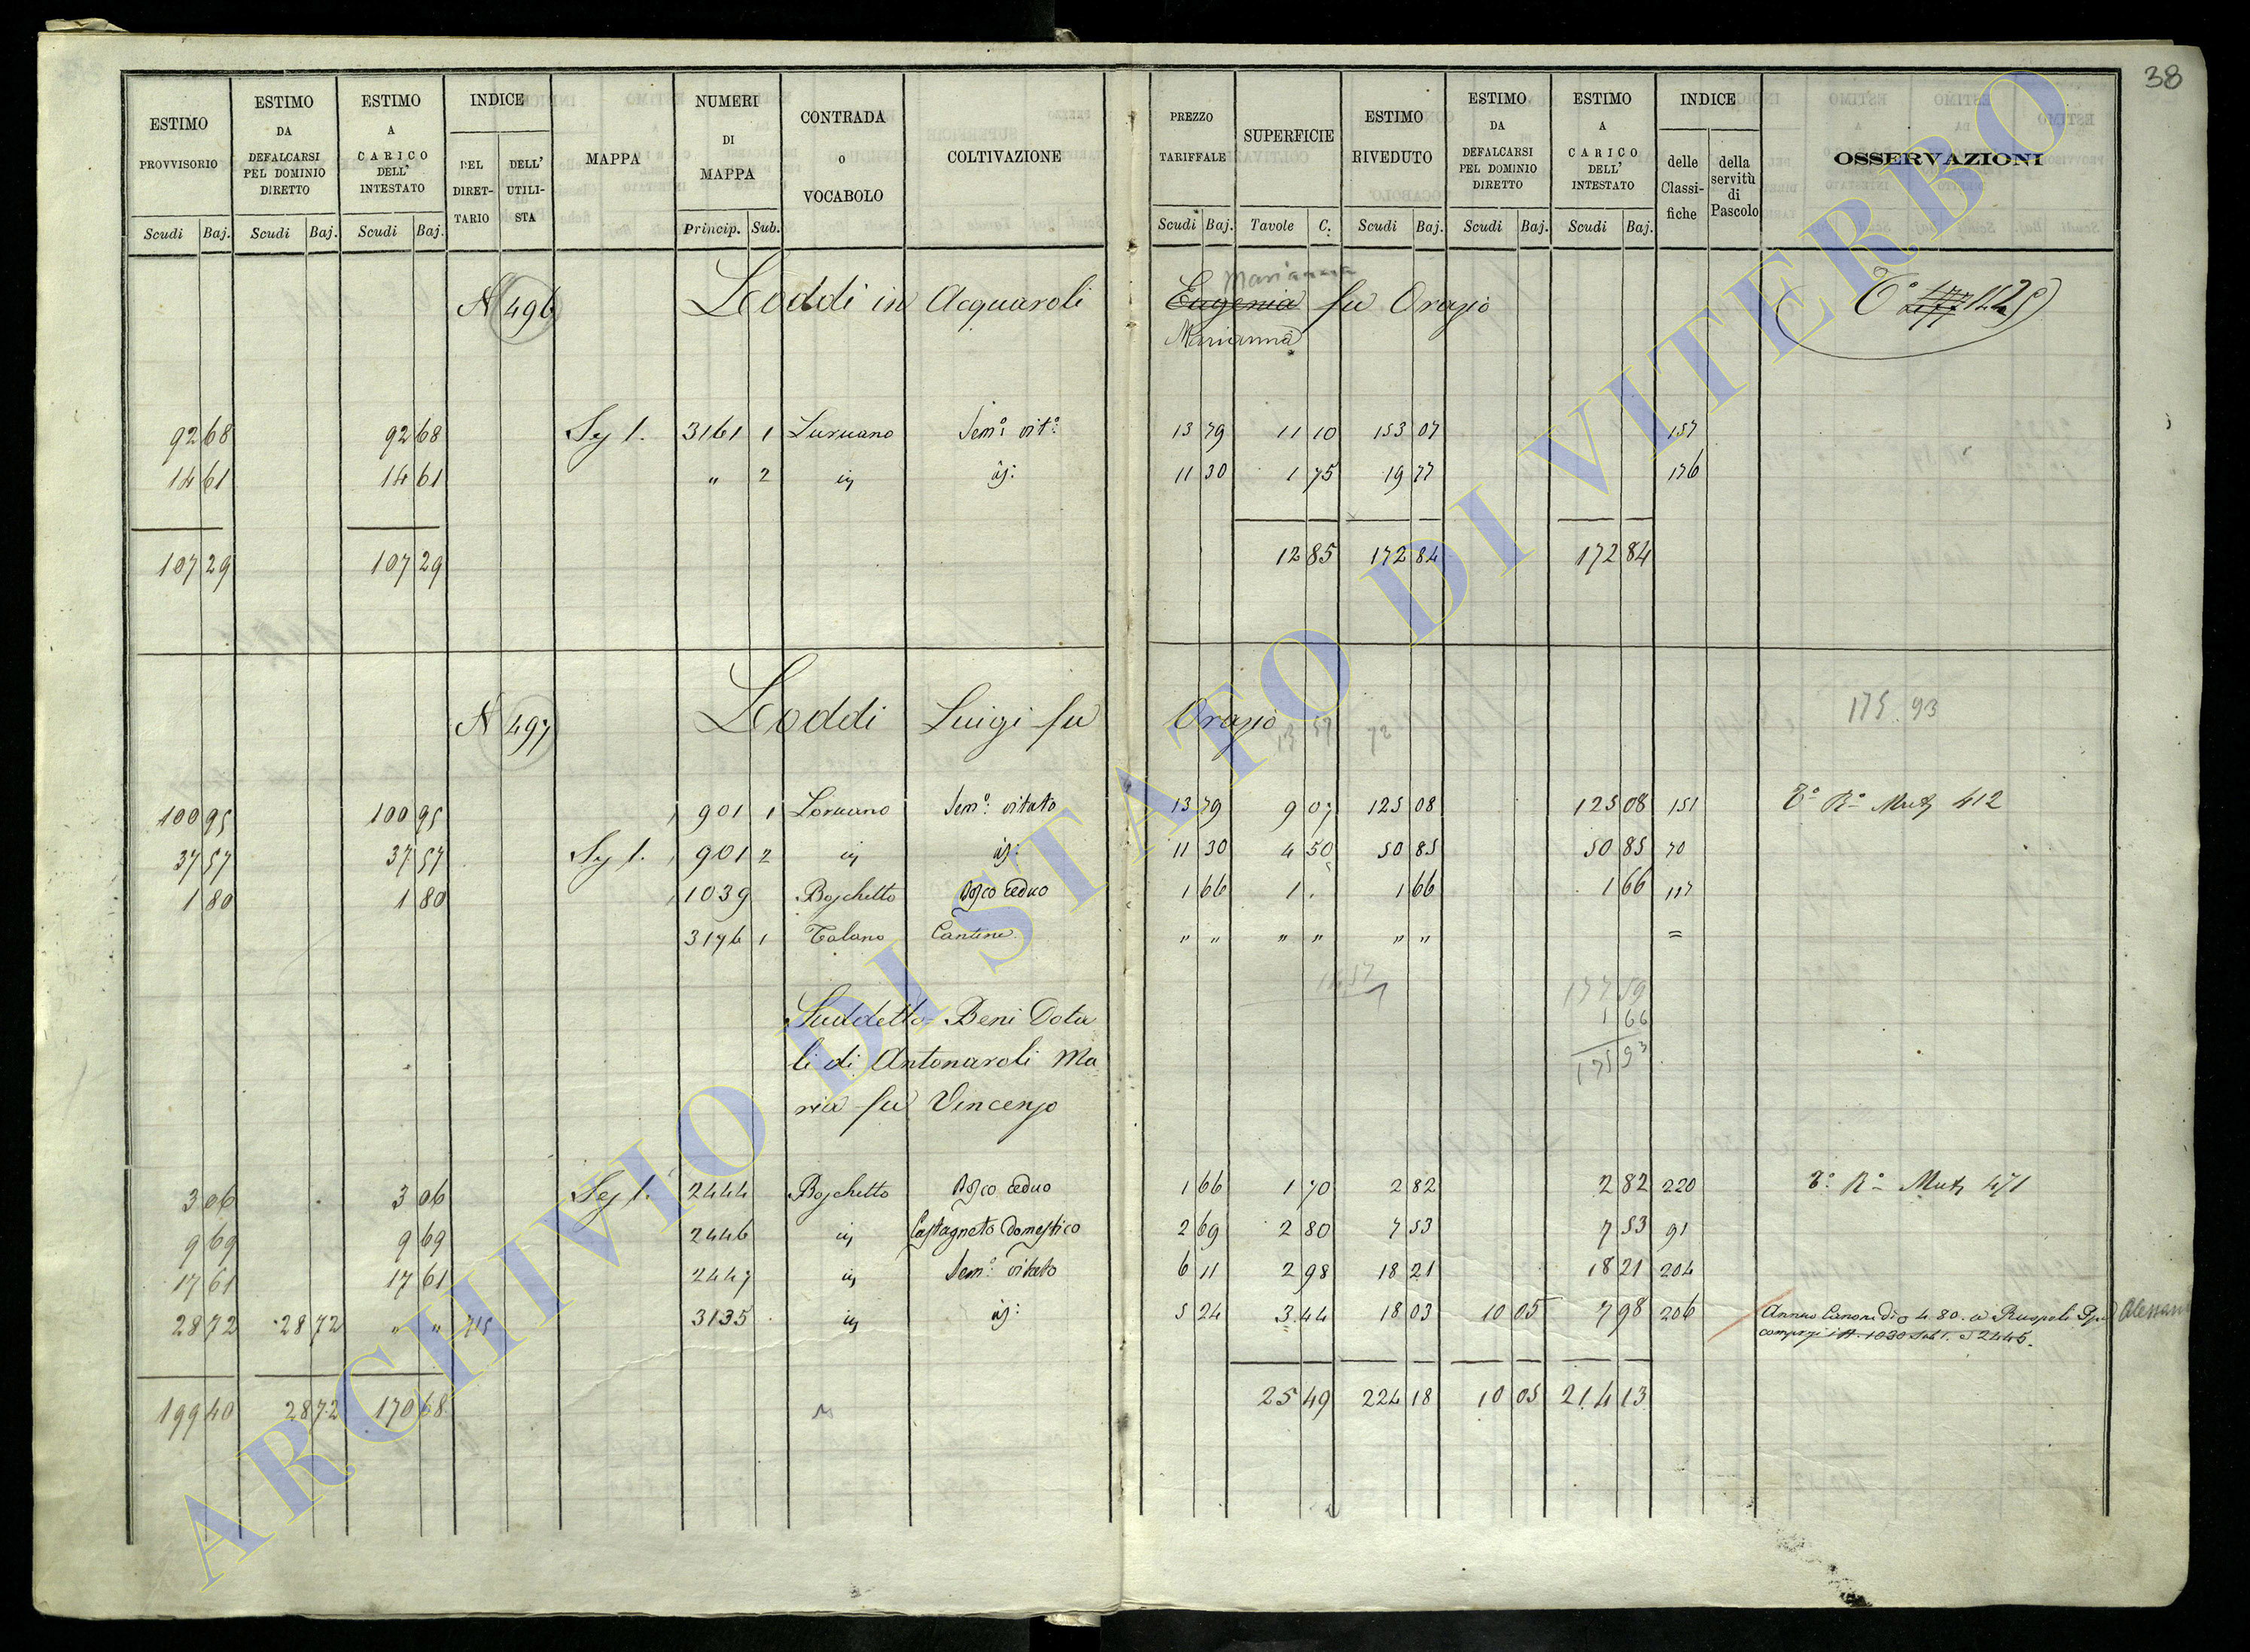 38
ESTIMO PROVVISORIO
ESTIMO DA DEFALCARSI PEL DOMINIO DIRETTO
ESTIMO A CARICO DELL' INTESTATO
INDICE
DEL DIRETTARIO
DELL' UTILISTA
MAPPA
NUMERI DI MAPPA
CONTRADA O VOCABOLO
COLTIVAZIONE
PREZZO TARIFFALE
SUPERFICIE
ESTIMO RIVEDUTO
ESTIMO DA DEFALCARSI PEL DOMINIO DIRETTO
ESTIMO A CARICO DELL' INTESTATO
INDICE
delle Classifiche
della servitù di Pascolo
OSSERVAZIONI
Scudi Baj. Scudi Baj. Scudi Baj. Princip. Sub. Scudi Baj. Tavole C. Scudi Baj. Scudi Baj. Scudi Baj.
Marianna
N 496 Loddi in Acquaroli Eugenia fu Orazio
Marianna
92 68 92 68 3161 1 Sem.° vit.° 13 79 11 10 153 07 157
14 61 14 61 " 2 11 30 1 75 19 77 176
107 29 107 29 12 85 172 84 172 84
N 497 Loddi Luigi fu Orazio
175.93
100 95 100 95 901 1 Sem.° vitato 13 79 9 07 125 08 125 08 151 412
37 57 37 57 901 2 11 30 4 50 50 85 50 85 70
1 80 1 80 1039 Boschetto Bosco ceduo 1 66 1 . 1 66 1 66 117
3176 1 " " " " " " =
177 59
1 66
175 93
Suddetto Beni Dota
li di Antonaroli Ma
ria fu Vincenzo
3 06 3 06 2444 Boschetto Bosco ceduo 1 66 1 70 2 82 2 82 220 471
9 69 9 69 2446 Castagneto Domestico 2 69 2 80 7 53 7 53 91
17 61 17 61 2447 Sem.° vitato 6 11 2 98 18 21 18 21 204
28 72 28 72 " " 715 3135 5 24 3 44 18 03 10 05 7 98 206 Annuo Canone di 4.80 a Ruspoli
199 40 28 72 170 68 25 49 224 18 10 05 214 13
ARCHIVIO DI STATO DI VITERBO